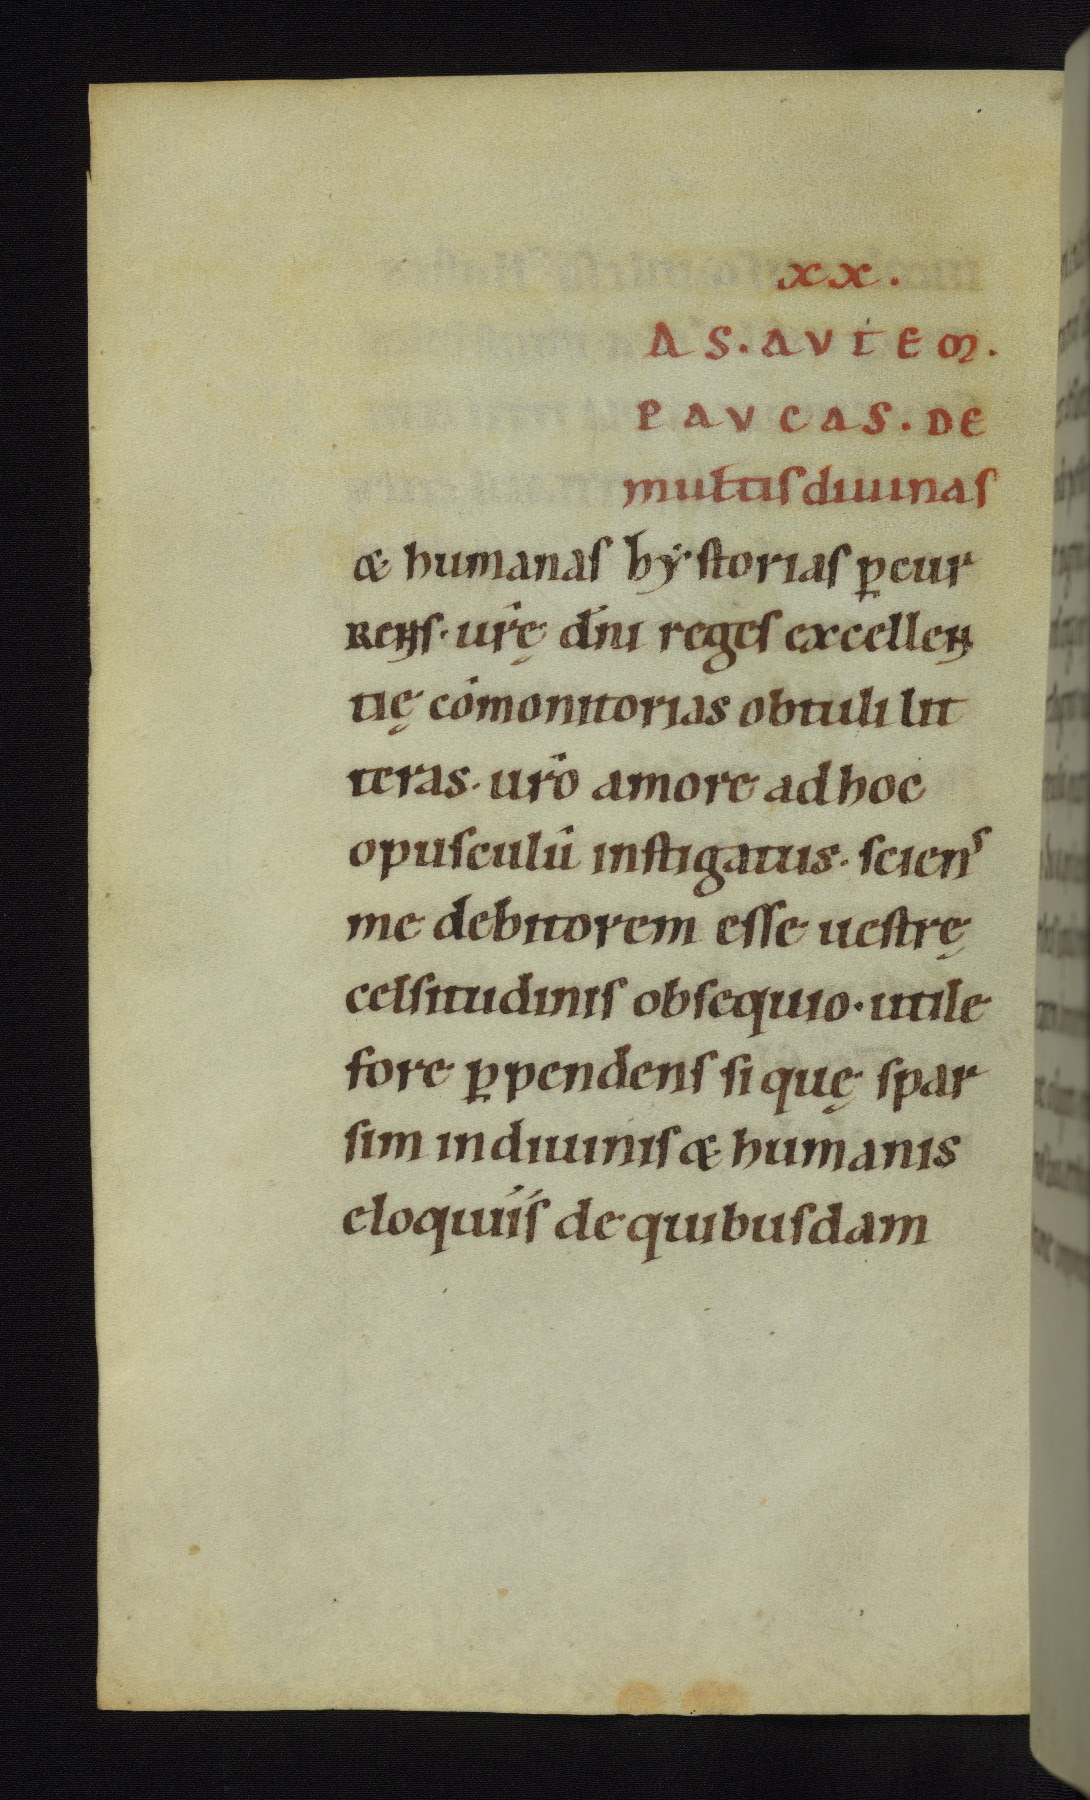 xx.
AS. AUTEM.
PAUCAS. DE
multis diuinas
& humanas hẏstorias ꝑcur
rens· ur̄ę dn̄i reges excellen
tię cōmonitorias obtuli lit
teras· ur̄o amore ad hoc
opusculū instigatus· sciens
me debitorem esse uestrę
celsitudinis obsequio· utile
fore ꝑpendens si quę spar
sim in diuinis & humanis
eloquiis de quibusdam